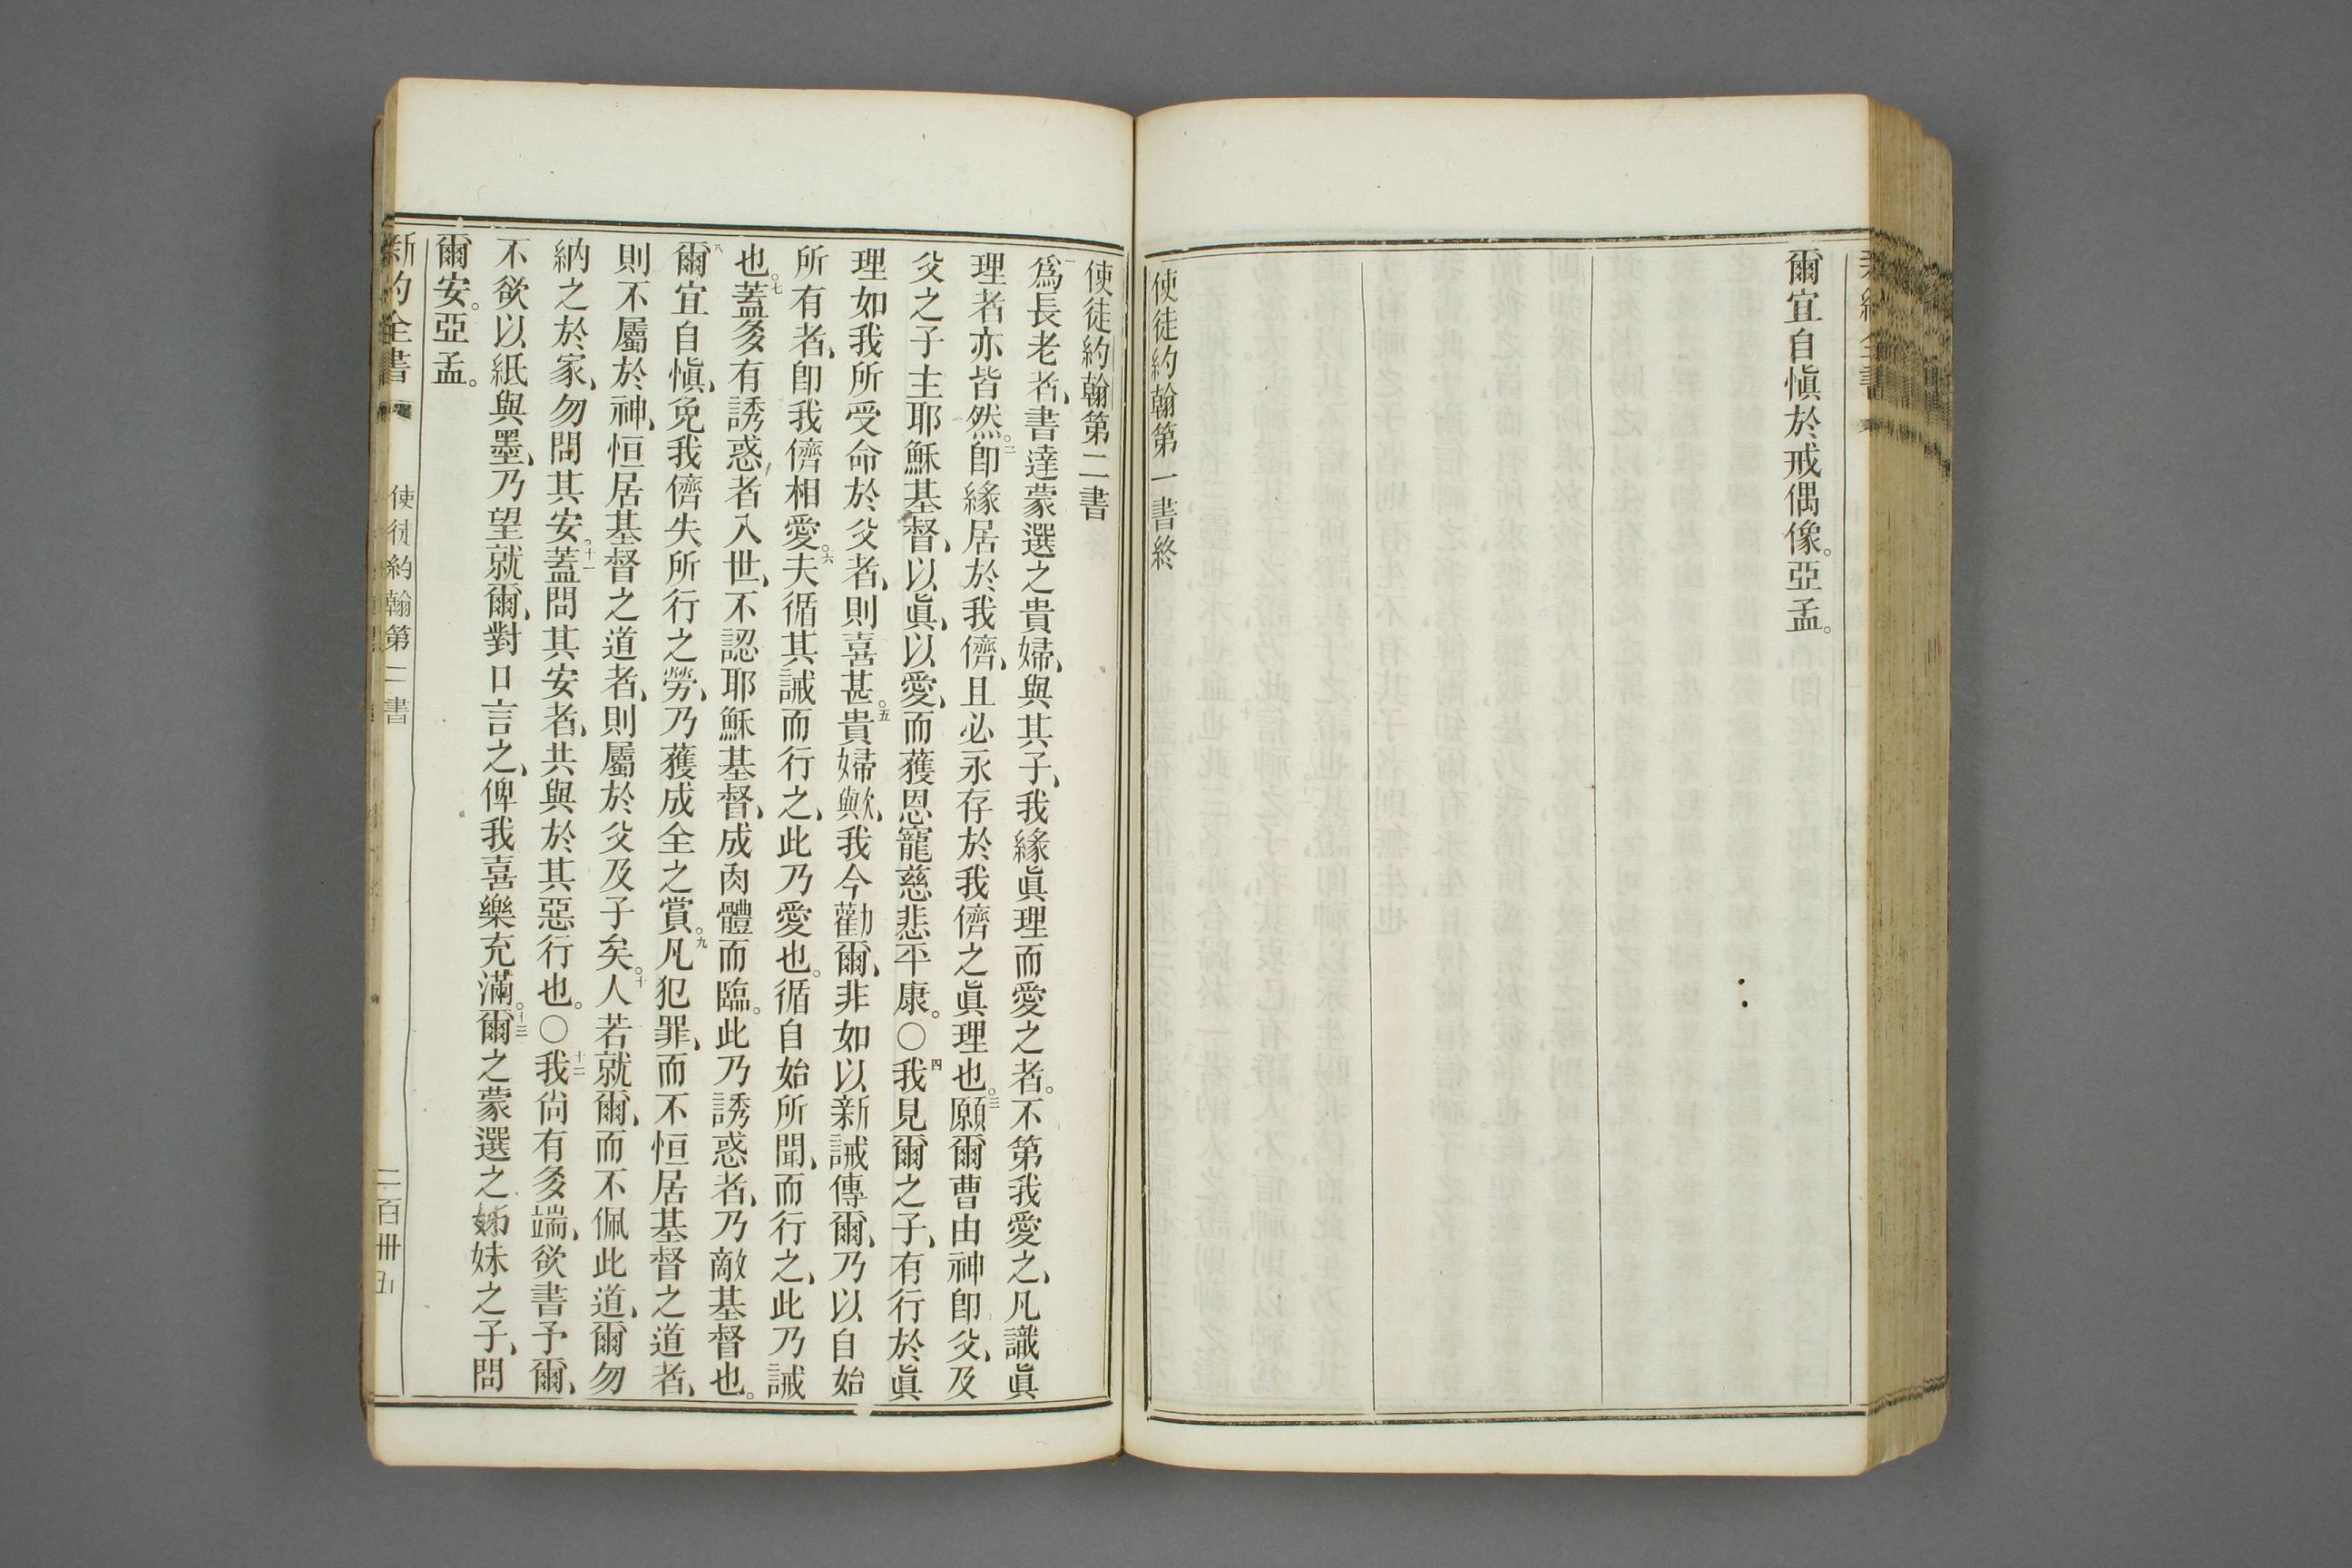 爾宜自愼於戒偶像。亞孟。
使徒約翰第一書終
使徒約翰第二書
一爲長老者、書達蒙選之貴婦、與其子、我緣眞理而愛之者。不第我愛之、凡識眞
理者亦皆然。二卽緣居於我儕、且必永存於我儕之眞理也。三願爾曹由神卽父、及
父之子主耶穌基督、以眞、以愛、而獲恩寵慈悲平康。○四我見爾之子、有行於眞
理如我所受命於父者、則喜甚。五貴婦歟、我今勸爾、非如以新誡傳爾、乃以自始
所有者、卽我儕相愛。六夫循其誡而行之、此乃愛也。循自始所聞、而行之、此乃誡
也。七蓋多有誘惑者入世、不認耶穌基督、成肉體而臨。此乃誘惑者、乃敵基督也。
八爾宜自愼、免我儕失所行之勞、乃獲成全之賞。九凡犯罪、而不恒居基督之道者、
則不屬於神、恒居基督之道者、則屬於父及子矣。十人若就爾、而不佩此道、爾勿
納之於家、勿問其安。十一蓋問其安者、共與於其惡行也。○十二我尙有多端、欲書予爾、
不欲以紙與墨、乃望就爾、對口言之、俾我喜樂充滿。十三爾之蒙選之姊妹之子、問
爾安。亞孟。
新約全書 使徒約翰第二書 二百卅五